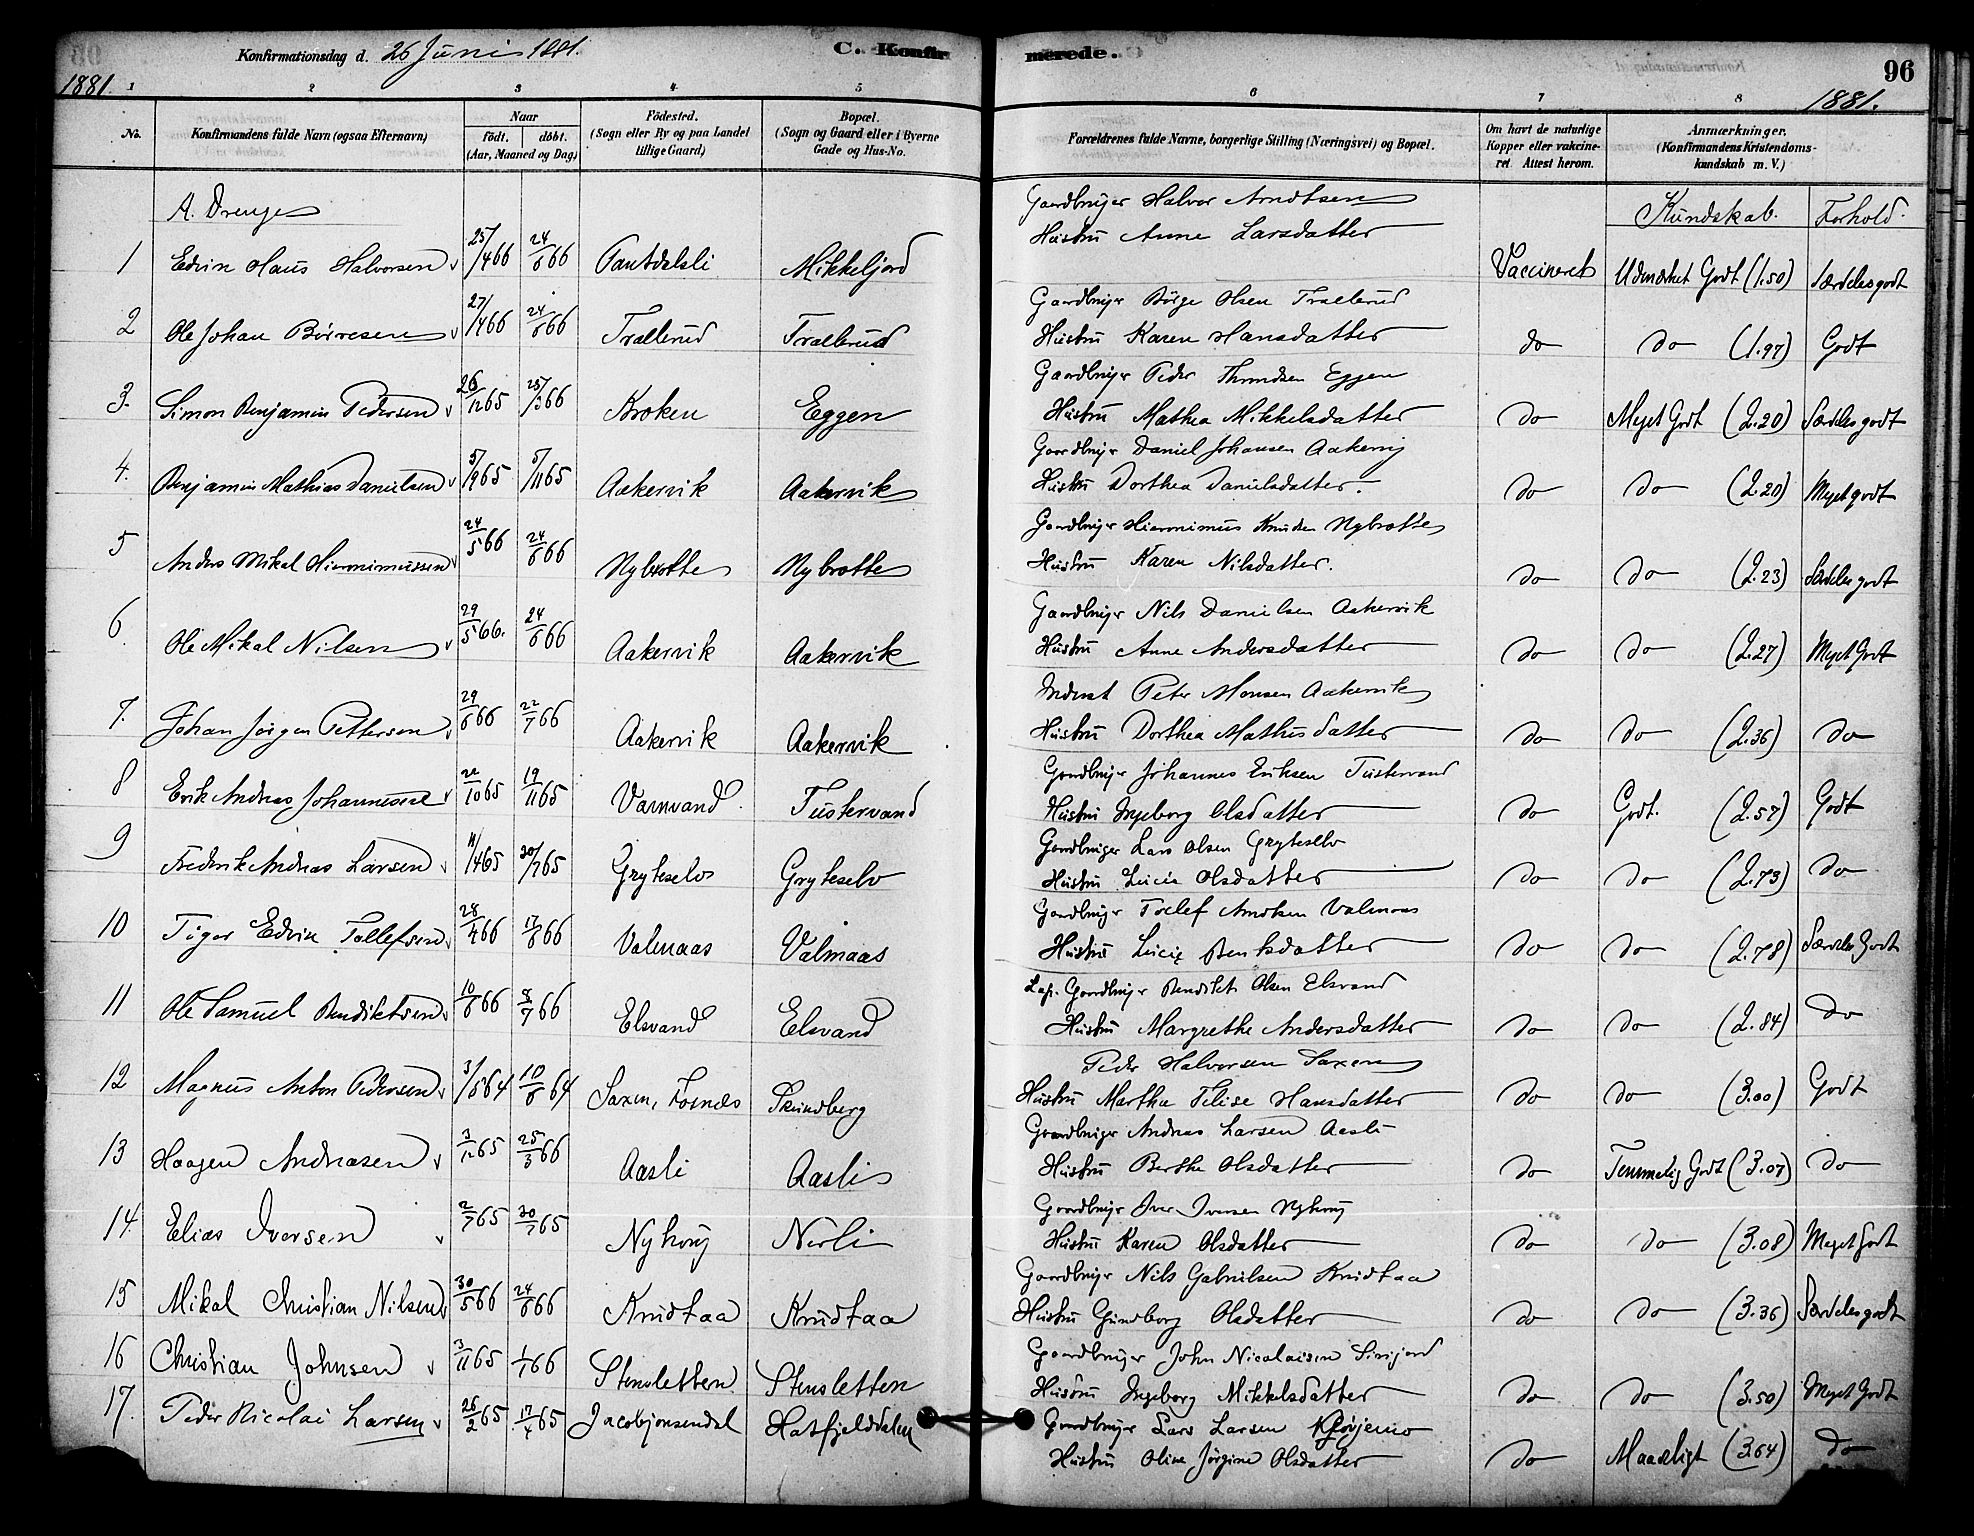 Konfirmationsdag d. 26 Juni 1881. C. Konfirmerede. 96
1881. 1881.
1 2 3 4 5 6 7 8
No. Konfirmandens fulde Navn (ogsaa Efternavn) Naar födt. döbt. (Aar, Maaned og Dag) Födested. (Sogn eller By og paa Landet tillige Gaard) Bopæl. (Sogn og Gaard eller i Byerne Gade og Hus-No. Forældrenes fulde Navne, borgerlige Stilling (Næringsvei) og Bopæl. Om havt de naturlige Kopper eller vaccineret Attest herom. Anmærkninger. (Konfirmandens Kristendomskundskab m. V.)
A. Drenge Kundskab. Forhold.
Gaardbruger Halvor Arndtsen
Hustru Anne Larsdatter
1 Edvin Hans Halvorsen 25/4 66 24/6 66 Mikkeljord Vaccineret Udmærket Godt (1.50) Særdeles godt
Gaardbruger Börge Olsen Trællerud
2 Ole Johan Börresen 27/4 66 24/6 66 Trællerud Trællerud Hustru Karen Hansdatter do do (1.97) Godt
Gaardbruger Peder Eggen
3. Simon Benjamin Pedersen 26/12 65 25/3 66 Kroken Eggen Hustru Mathea Mikkelsdatter do Meget Godt (2.20) Særdeles godt
Gaardbruger Daniel Johansen Aakervig
4. Benjamin Mathias Danielsen 5/9 65 5/11 65 Aakervik Aakervik Hustru Dorthea Danielsdatter. do do (2.20) Meget godt
Gaardbruger Hieronimus Knudsen Nybrotte
5 Anders Mikal Hieronimussen 24/5 66 24/6 66 Nybrotte Nybrotte Hustru Karen Nilsdatter. do do (2.23) Særdeles godt
Gaardbruger Nils Danielsen Aakervik
6. Ole Mikal Nilsen 29/5 66. 24/6 66 Aakervik Aakervik Hustru Anne Andersdatter do do (2.27) Meget Godt
Inderst Peter Monsen Aakervik
7. Johan Jörgen Pettersen 29/6 66 22/7 66 Aakervik Aakervik Hustru Dorthea Mathisdatter do do (2.36) do
Gaardbruger Johannes Eriksen Tustervand
8 Erik Andreas Johannesen 22/10 65 19/11 65 Varnvand Tustervand Hustru Ingeborg Olsdatter do Godt. (2.57) Godt
Gaardbruger Lars Olsen Gryteselv
9 Fredrik Andreas Larsen 11/4 65 30/7 65 Gryteselv Gryteselv Hustru Lucie Olsdatter do do (2.73) do
Gaardbruger Tollef Arntsen Valmaas
10 Edvin Tollefsen 28/4 66 17/6 66 Valmaas Valmaas Hustru Lucie Bentsdatter do do (2.78) Særdeles Godt
Lap. Gaardbruger Bendikt Olsen Elsvand
11 Ole Samuel Bendiktsen 10/6 66 8/7 66 Elsvand Elsvand Hustru Margrethe Andersdatter do do (2.84) do
Peder Halvorsen Saxen
12 Magnus Anton Pedersen 3/5 64 10/6 64 Saxen, Hustru Martha Felise Hansdatter do do (3.00) Godt
Gaardbruger Andreas Larsen Aasli
13 Haagen Andreasen 3/12 65 25/3 66 Aasli Aasli Hustru Berthe Olsdatter do Temmelig Godt (3.07) do
Gaardbruger Iver Iversen Nyhoug
14. Elias Iversen 2/7 65 30/7 65 Nyhoug Nerli Hustru Karen Olsdatter do do (3.08) Meget godt
Gaardbruger Nils Gabrielsen Knudtaa
15 Mikal Christian Nilsen 30/5 66 24/6 66 Knudtaa Knudtaa Hustru Gundborg Olsdatter do do (3.36) Særdeles godt
Gaardbruger John Nicolaisen Sirijord
16 Christian Johnsen 3/11 65 1/1 66 Stensletten Stensletten Hustru Ingeborg Mikkelsdatter do do (3.50) Meget Godt
17. Peder Nicolai Larsen 26/2 65 17/4 65 Jacobjonsendal Hatfjelddalen Gaardbruger Lars Larsen
Hustru Oline Jörgine Olsdatter do Maadeligt (3.64) do